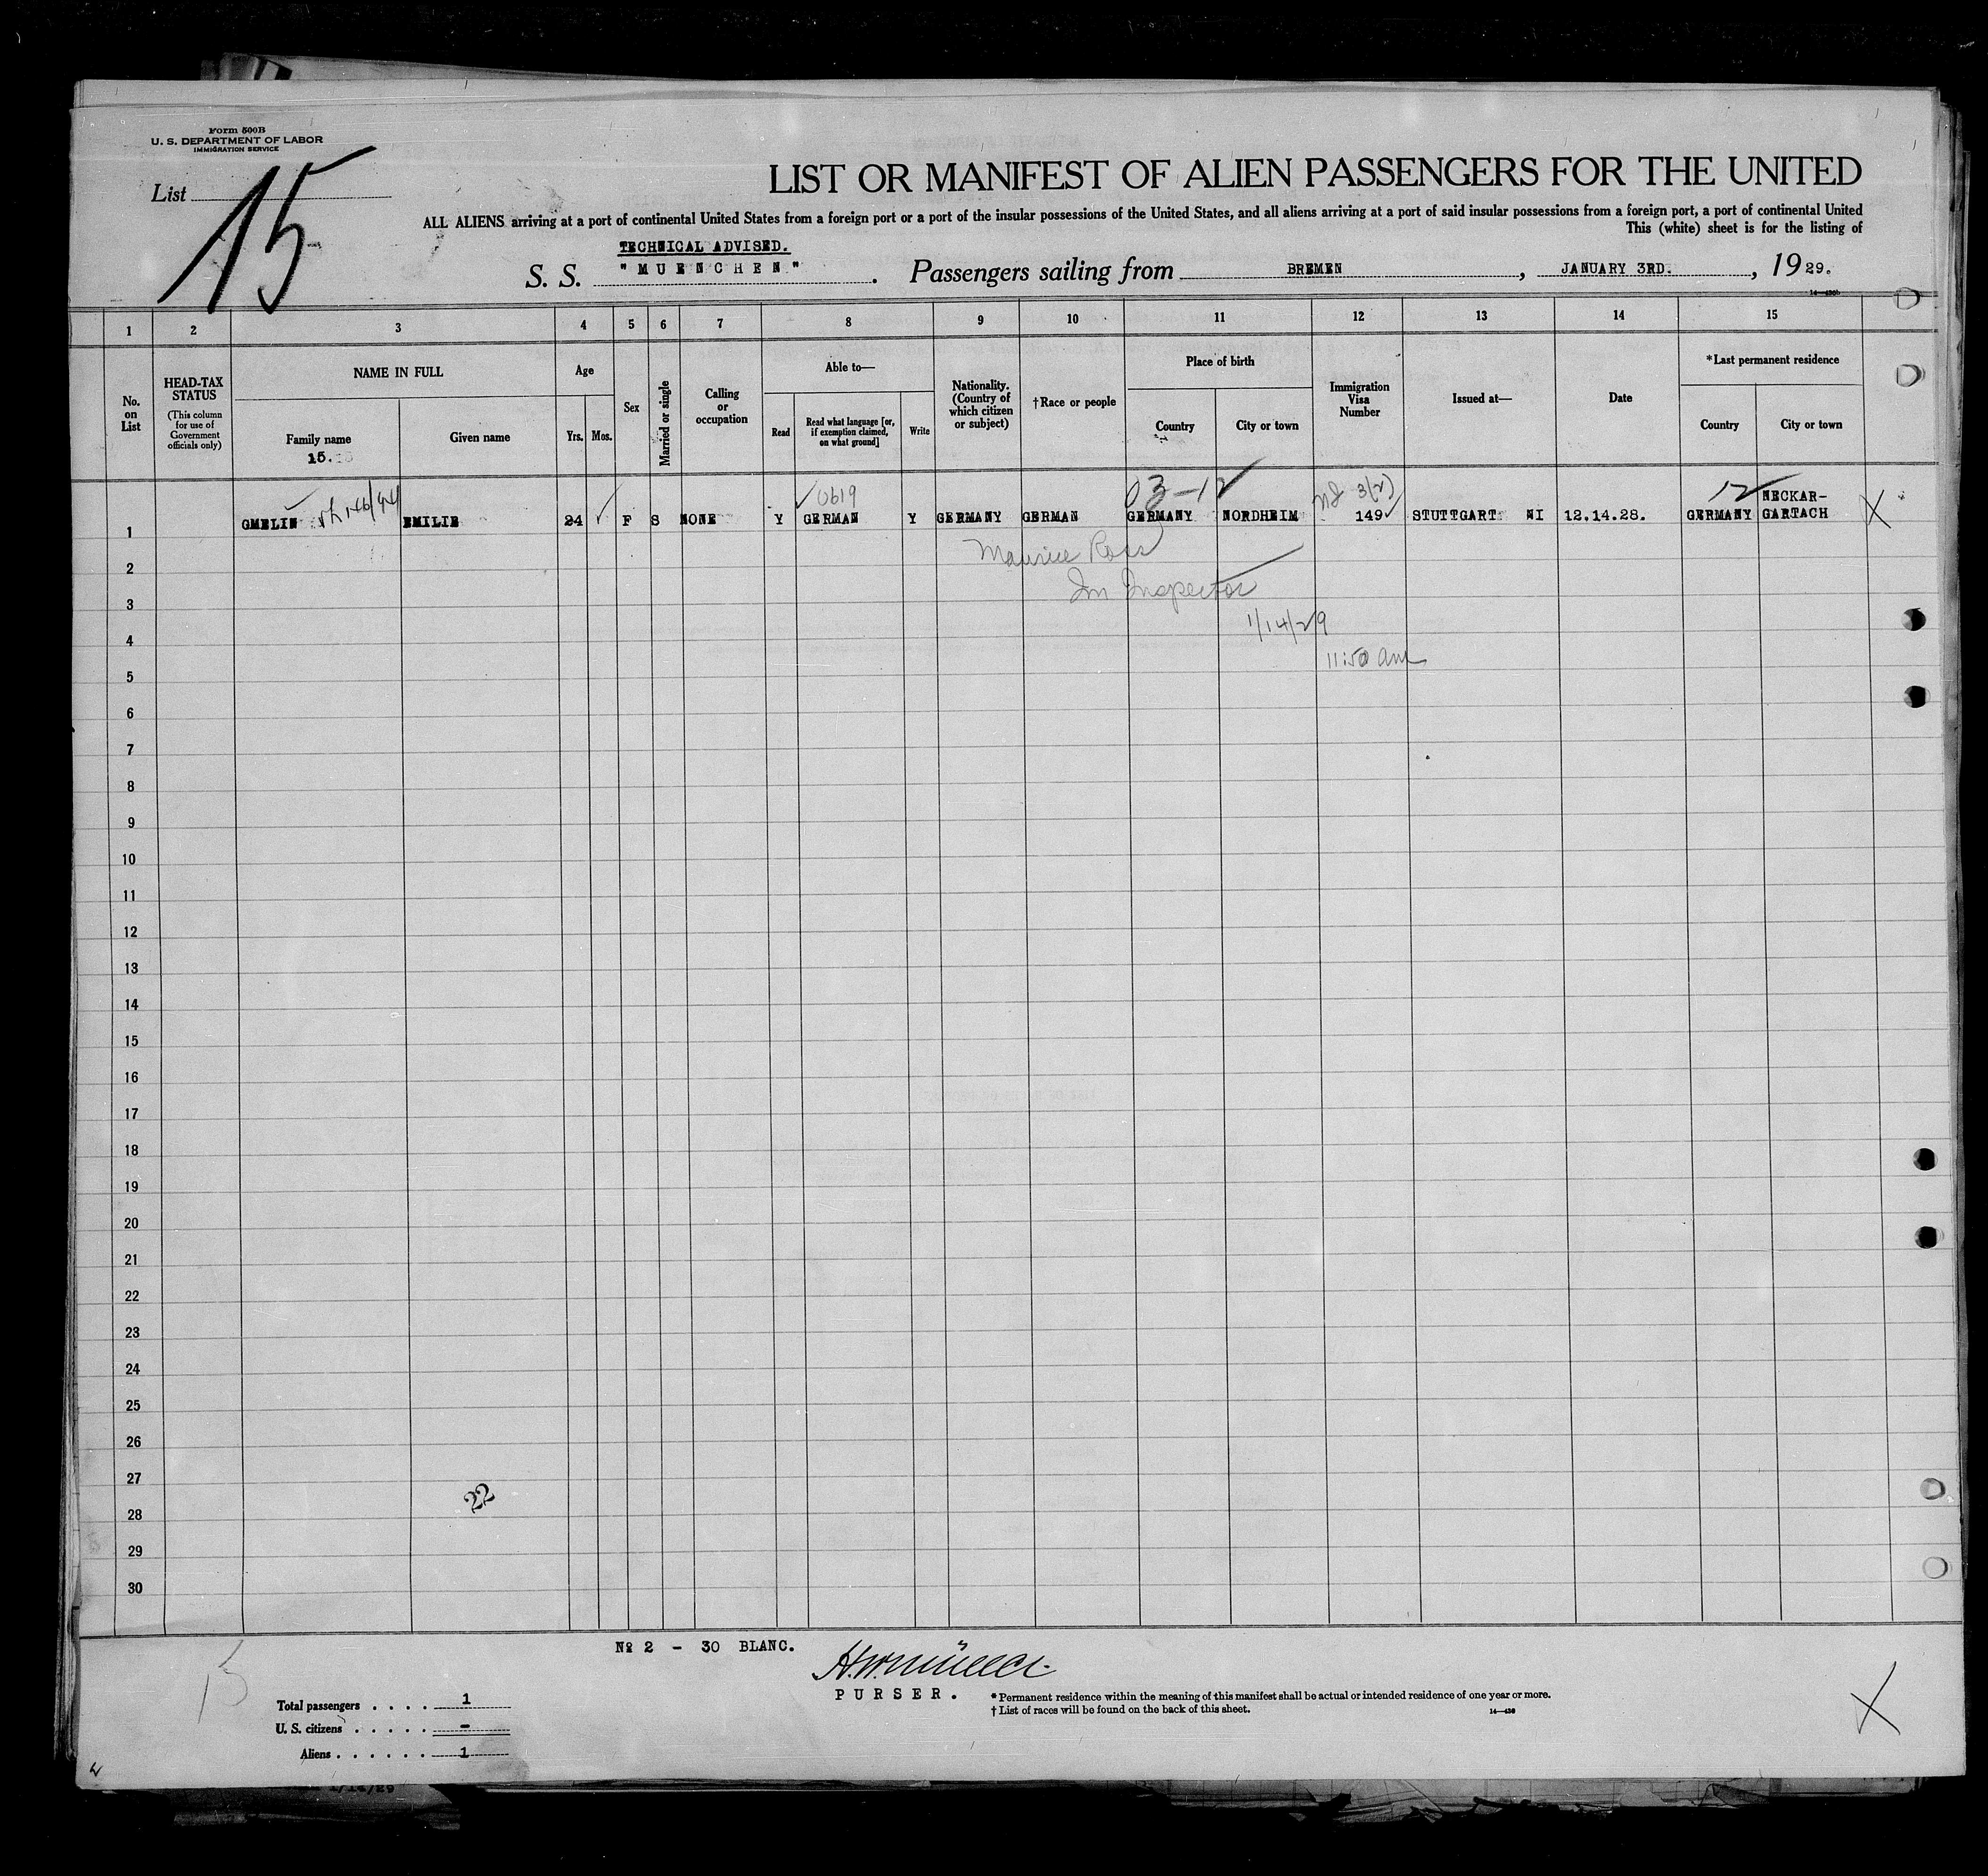 Form 500B
U. S. DEPARTMENT OF LABOR
IMMIGRATION SERVICE
List 15
LIST OR MANIFEST OF ALIEN PASSENGERS FOR THE UNITED
ALL ALIENS arriving at a port of continental United States from a foreign port or a port of the insular possessions of the United States, and all aliens arriving at a port of said insular possessions from a foreign port, a port of continental United
This (white) sheet is for the listing of
TECHNICAL ADVISED.
S. S. "MUENCHEN". Passengers sailing from BREMEN, JANUARY 3RD., 1929.
1 2 3 4 5 6 7 8 9 10 11 12 13 14 15
No. on List
HEAD-TAX STATUS
(This column for use of Government officials only)
NAME IN FULL
Family name
15.
Given name
Age
Yrs. Mos.
Sex
Married or single
Calling or occupation
Able to—
Read
Read what language [or, if exemption claimed, on what ground]
Write
Nationality. (Country of which citizen or subject)
†Race or people
Place of birth
Country
City or town
Immigration Visa Number
Issued at—
Date
*Last permanent residence
Country
City or town
0619 03-12 3(2) 12 NECKAR-
1 GMELIN EMILIE 24 F S NONE Y GERMAN Y GERMANY GERMAN GERMANY NORDHEIM 149 STUTTGART NI 12.14.28. GERMANY GARTACH X
Maurice Ross
2
Im Inspector
3
1/14/29
4
11:50 am
5
6
7
8
9
10
11
12
13
14
15
16
17
18
19
20
21
22
23
24
25
26
27
22
28
29
30
№ 2 - 30 BLANC.
15
PURSER.
Total passengers . . . . 1
U. S. citizens . . . . . -
Aliens . . . . . . 1
* Permanent residence within the meaning of this manifest shall be actual or intended residence of one year or more.
† List of races will be found on the back of this sheet.
X